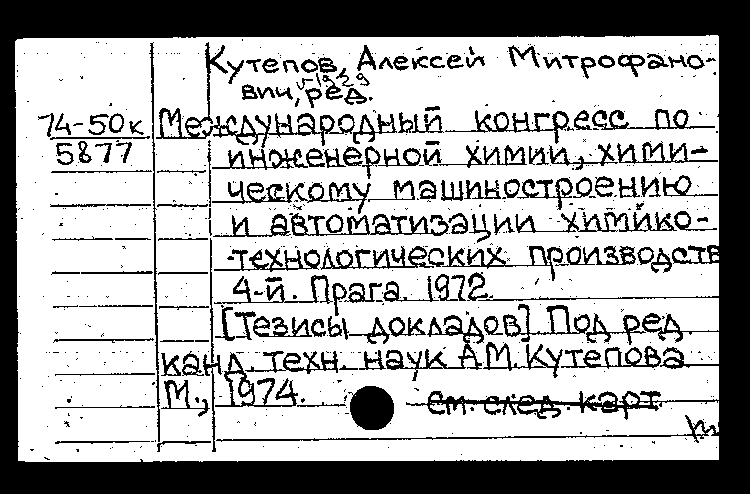 Кутепов, Алексей Митрофано-
вич, 1929 ред.
74-50к Международный конгресс по
5877 инженерной химии, хими-
ческому машиностроению
и автоматизации химико-
-технологических производств
4-й. Прага. 1972.
[Тезисы докладов] Под ред.
канд. техн. наук А.М. Кутепова
М., 1974. См. след. карт.